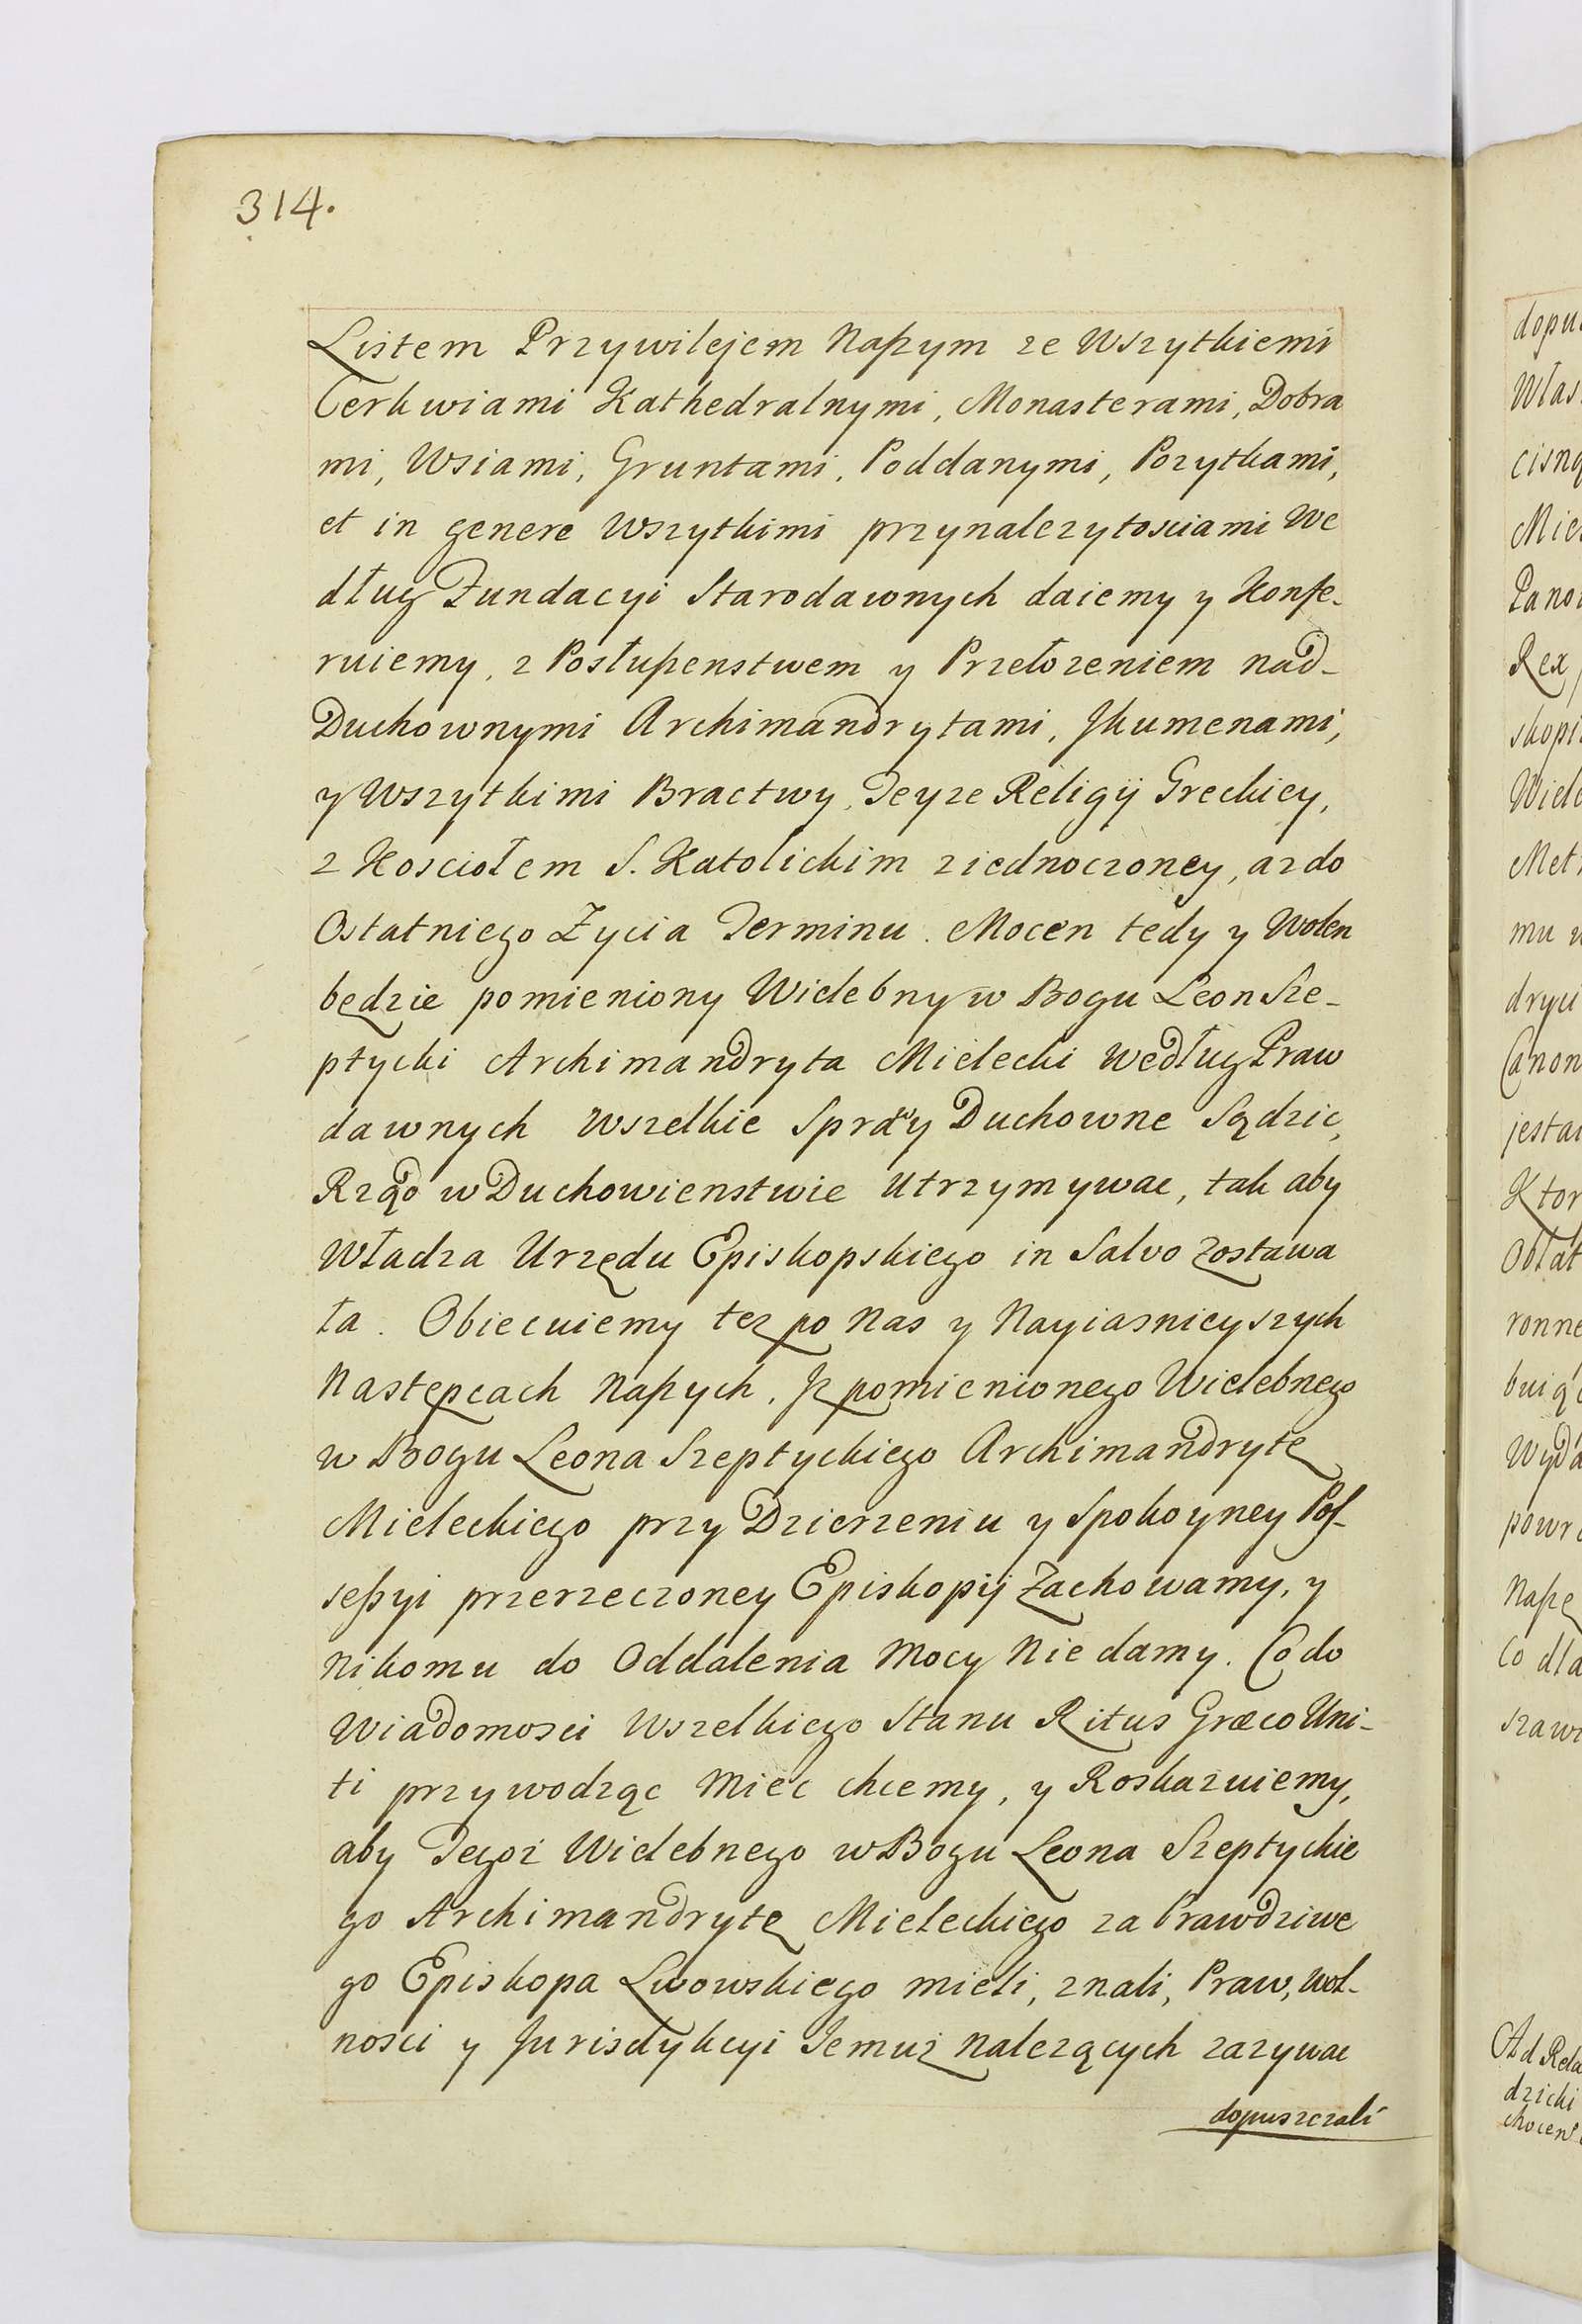 314.
Listem Przywilejem Naszym ze Wszytkiemi
Cerkwiami Kathedralnymi, Monasterami, Dobra
mi, Wsiami, Gruntami, Poddanymi, Pozytkami,
et in genere Wszytkimi przynalezytosciami We
dług Fundacyi Starodawnych daiemy y Konfe-
ruiemy, z Posłuszenstwem y Przełozeniem nad-
Duchownymi Archimandrytami, Jhumenami,
y Wszytkimi Bractwy, Teyze Religij Greckiey,
z Kosciołem S. Katolickim ziednoczoney, az do
Ostatniego Zycia Terminu. Mocen tedy y Wolen
będzie pomieniony Wielebny w Bogu Leon Sze-
ptycki Archimandryta Mielecki według Praw
dawnych wszelkie Sprawy Duchowne Sądzic,
Rząd w Duchowienstwie Utrzymywac, tak aby
Władza Urzędu Episkopskiego in Salvo zostawa
ła. Obiecuiemy tez po Nas y Nayiasnieyszych
Następcach Naszych, Jz pomienionego Wielebnego
w Bogu Leona Szeptyckiego Archimandrytę
Mieleckiego przy Dzierzeniu y Spokoyney Pos-
sessyi przerzeczoney Episkopij Zachowamy, y
Nikomu do Oddalenia Mocy Nie damy. Co do
Wiadomosci Wszelkiego Stanu Ritus Græco Uni-
ti przywodząc Miec chcemy, y Roskazuiemy,
aby Tegoż Wielebnego w Bogu Leona Szeptyckie
go Archimandrytę Mieleckiego za Prawdziwe
go Episkopa Lwowskiego mieli, znali, Praw, Wol-
nosci y Jurisdykcyi Jemuż Nalezących zazywac
dopuszczali
dopu
Włas
cisną
Pano
Rex
skopi
Wiele
Met
mu
Canon
jesta
Ktor
Oblat
ronne
powr
Naszę
Co dla
szaw
Ad Rela
dzicki